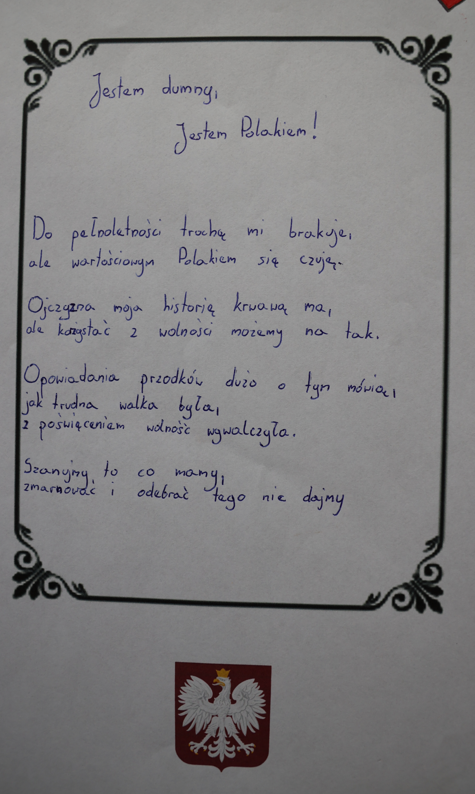 Jestem dumny,
Jestem Polakiem!
Do pełnoletności trochę mi brakuje,
ale wartościowym Polakiem się czuję.
Ojczyzna moja historię krwawą ma,
ale korzystać z wolności możemy na tak.
Opowiadania przodków dużo o tym mówią,
jak trudna walka była,
z poświęceniem wolność wywalczyła.
Szanujmy to co mamy,
zmarnować i odebrać tego nie dajmy